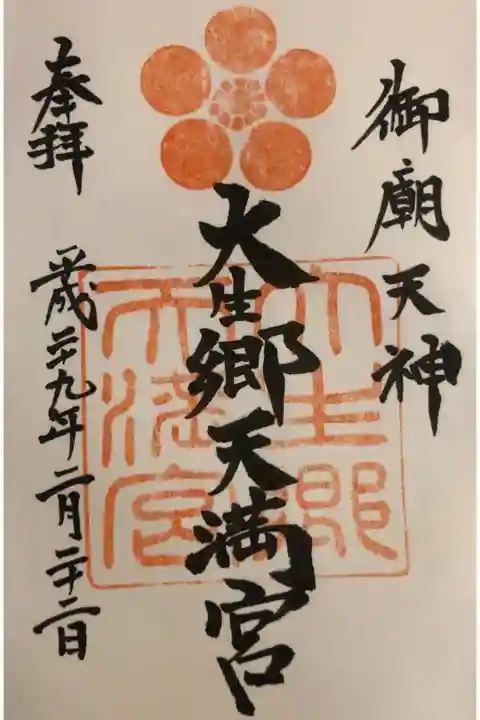 御廟天神
大生郷天満宮
大生郷
天満宮
奉拝
平成二十九年二月二十二日